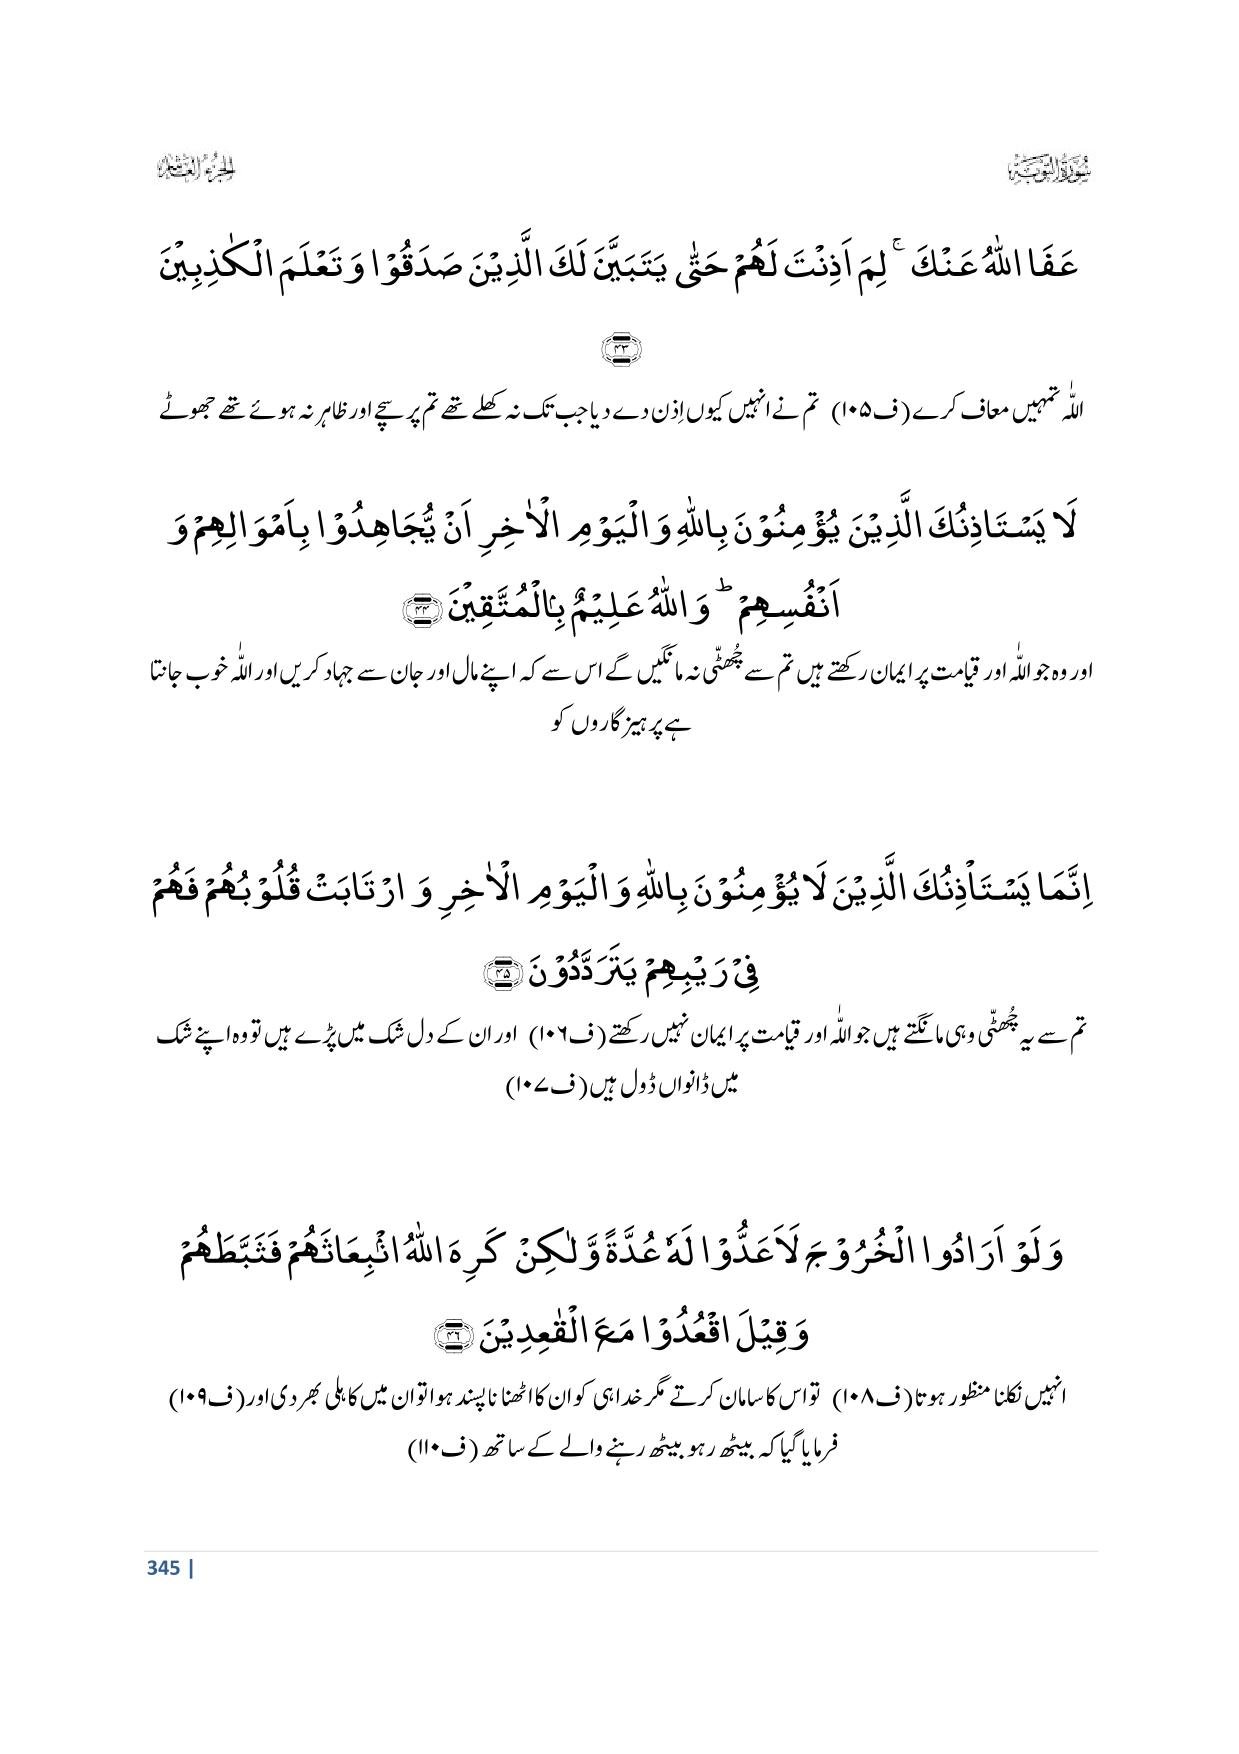 سُوۡرَۃُ التَّوۡبَۃِ
الجُزءُ العَاشِر
عَفَا اللّٰہُ عَنۡکَ ۚ لِمَ اَذِنۡتَ لَہُمۡ حَتّٰی یَتَبَیَّنَ لَکَ الَّذِیۡنَ صَدَقُوۡا وَ تَعۡلَمَ الۡکٰذِبِیۡنَ
﴿۴۳﴾
اللّٰہ تمہیں معاف کرے (ف۱۰۵) تم نے انہیں کیوں اِذن دے دیا جب تک نہ کھلے تھے تم پر سچے اور ظاہر نہ ہوئے تھے جھوٹے
لَا یَسۡتَاۡذِنُکَ الَّذِیۡنَ یُؤۡمِنُوۡنَ بِاللّٰہِ وَ الۡیَوۡمِ الۡاٰخِرِ اَنۡ یُّجَاہِدُوۡا بِاَمۡوَالِہِمۡ وَ
اَنۡفُسِہِمۡ ؕ وَ اللّٰہُ عَلِیۡمٌۢ بِالۡمُتَّقِیۡنَ ﴿۴۴﴾
اور وہ جو اللّٰہ اور قیامت پر ایمان رکھتے ہیں تم سے چُھٹّی نہ مانگیں گے اس سے کہ اپنے مال اور جان سے جہاد کریں اور اللّٰہ خوب جانتا
ہے پرہیزگاروں کو
اِنَّمَا یَسۡتَاۡذِنُکَ الَّذِیۡنَ لَا یُؤۡمِنُوۡنَ بِاللّٰہِ وَ الۡیَوۡمِ الۡاٰخِرِ وَ ارۡتَابَتۡ قُلُوۡبُہُمۡ فَہُمۡ
فِیۡ رَیۡبِہِمۡ یَتَرَدَّدُوۡنَ ﴿۴۵﴾
تم سے یہ چُھٹّی وہی مانگتے ہیں جو اللّٰہ اور قیامت پر ایمان نہیں رکھتے (ف۱۰۶) اور ان کے دل شک میں پڑے ہیں تو وہ اپنے شک
میں ڈانواں ڈول ہیں (ف۱۰۷)
وَ لَوۡ اَرَادُوا الۡخُرُوۡجَ لَاَعَدُّوۡا لَہٗ عُدَّۃً وَّ لٰکِنۡ کَرِہَ اللّٰہُ انۡۢبِعَاثَہُمۡ فَثَبَّطَہُمۡ
وَ قِیۡلَ اقۡعُدُوۡا مَعَ الۡقٰعِدِیۡنَ ﴿۴۶﴾
انہیں نکلنا منظور ہوتا (ف۱۰۸) تو اس کا سامان کرتے مگر خدا ہی کو ان کا اٹھنا ناپسند ہوا تو ان میں کاہلی بھر دی اور (ف۱۰۹)
فرمایا گیا کہ بیٹھ رہو بیٹھ رہنے والے کے ساتھ (ف۱۱۰)
345 |